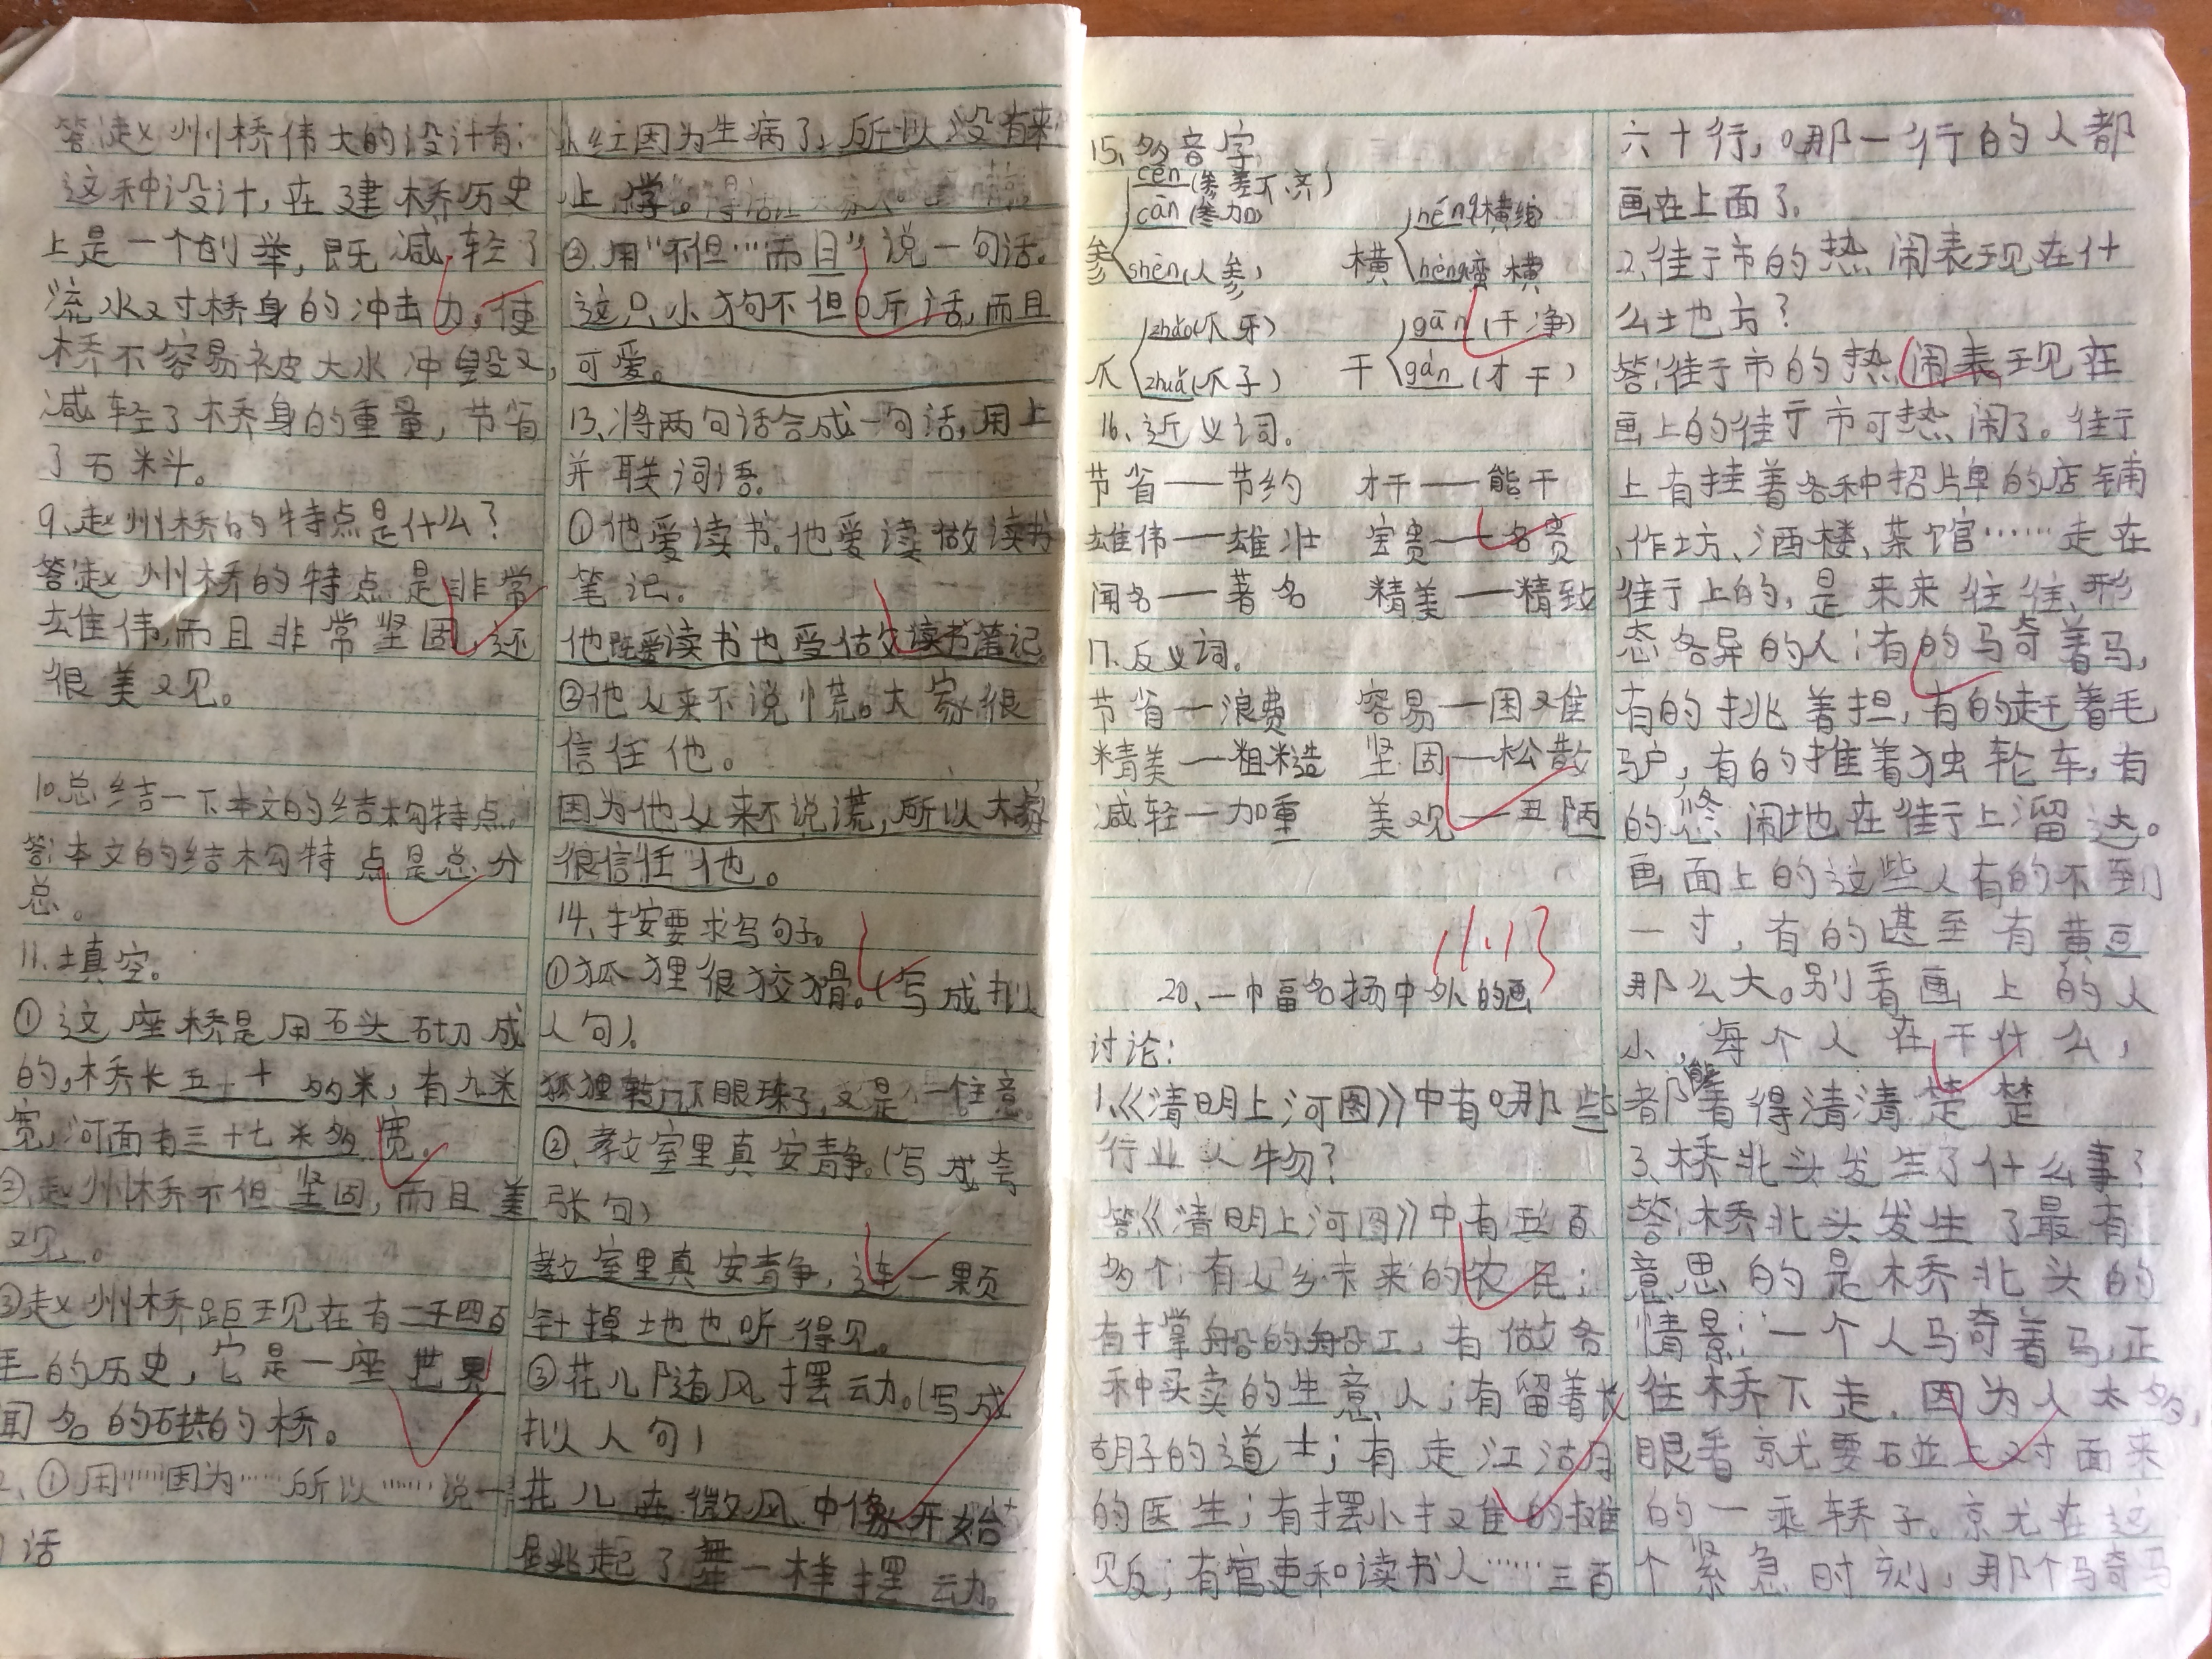 答:赵州桥伟大的设计有:
这种设计,在建桥历史
上是一个创举,既减轻了
流水对桥身的冲击力,使
桥不容易被大水冲毁,又
减轻了桥身的重量,节省
了石料。
9、赵州桥的特点是什么?
答:赵州桥的特点是非常
雄伟,而且非常坚固,还
很美观。
10.总结一下本文的结构特点。
答:本文的结构特点是总分
总。
11、填空。
①这座桥是用石头砌成
的,桥长五十多米,有九米
宽,河面有三十七米多宽。
②赵州桥不但坚固,而且美
观。
③赵州桥距现在有一千四百
年的历史,它是一座世界
闻名的石拱的桥。
2、①用……因为……所以……说一
话
小红因为生病了,所以没有来
上学。
②.用“不但…而且”说一句话。
这只小狗不但听话,而且
可爱。
13、将两句话合成一句话,用上
并联词语。
①他爱读书。他爱读做读书
笔记。
他既爱读书也爱做读书笔记。
②他从来不说慌。大家很
信任他。
因为他从来不说谎,所以大家
很信任他。
14、按要求写句子。
①狐狸很狡猾。(写成拟
人句)。
狐狸转了下眼珠子,又是一个主意。
②、教室里真安静。(写成夸
张句)
教室里真安静,连一颗
针掉地也听得见。
③花儿随风摆动。(写成
拟人句)
花儿在微风中像开始
跳起了舞一样摆动。
15、多音字
参 cēn(参差不齐)
cān(参加)
shēn(人参)
横 héng(横线)
hèng(蛮横
爪 zhǎo(爪牙)
zhuǎ(爪子)
干 gān(干净)
gàn(才干)
16、近义词。
节省——节约 才干——能干
雄伟——雄壮 宝贵——名贵
闻名——著名 精美——精致
17、反义词。
节省—浪费 容易—困难
精美—粗糙 坚固—松散
减轻—加重 美观—丑陋
11.13
20、一幅名扬中外的画
讨论:
1、《清明上河图》中有哪些
行业人物?
答:《清明上河图》中有五百
多个:有从乡下来的农民;
有撑船的船工,有做各
种买卖的生意人;有留着长
胡子的道士;有走江湖
的医生;有摆小摊的摊
贩;有官吏和读书人……三百
六十行,哪一行的人都
画在上面了。
2、街市的热闹表现在什
么地方?
答:街市的热闹表现在
画上的街市可热闹了。街
上有挂着各种招牌的店铺
、作坊、酒楼、茶馆……走在
街上的,是来来往往、形
态各异的人:有的骑着马,
有的挑着担,有的赶着毛
驴,有的推着独轮车,有
的悠闹地在街上溜达。
画面上的这些人有的不到
一寸,有的甚至有黄豆
那么大。别看画上的人
小,每个人在干什么,
都能看得清清楚楚
3、桥北头发生了什么事?
答:桥北头发生了最有
意思的是桥北头的
情景:一个人骑着马,正
往桥下走。因为人太多,
眼看就要碰上对面来
的一乘轿子。就在这
个紧急时刻,那个骑马